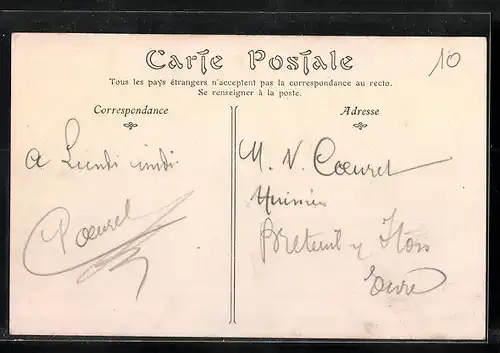 Carte Postale
Tous les pays étrangers n'acceptent pas la correspondance au recto.
Se renseigner à la poste.
10
Correspondance
Adresse
A Lundi midi.
Coeuret
M. V. Coeuret
Huissier
Breteuil s/ Iton
Eure